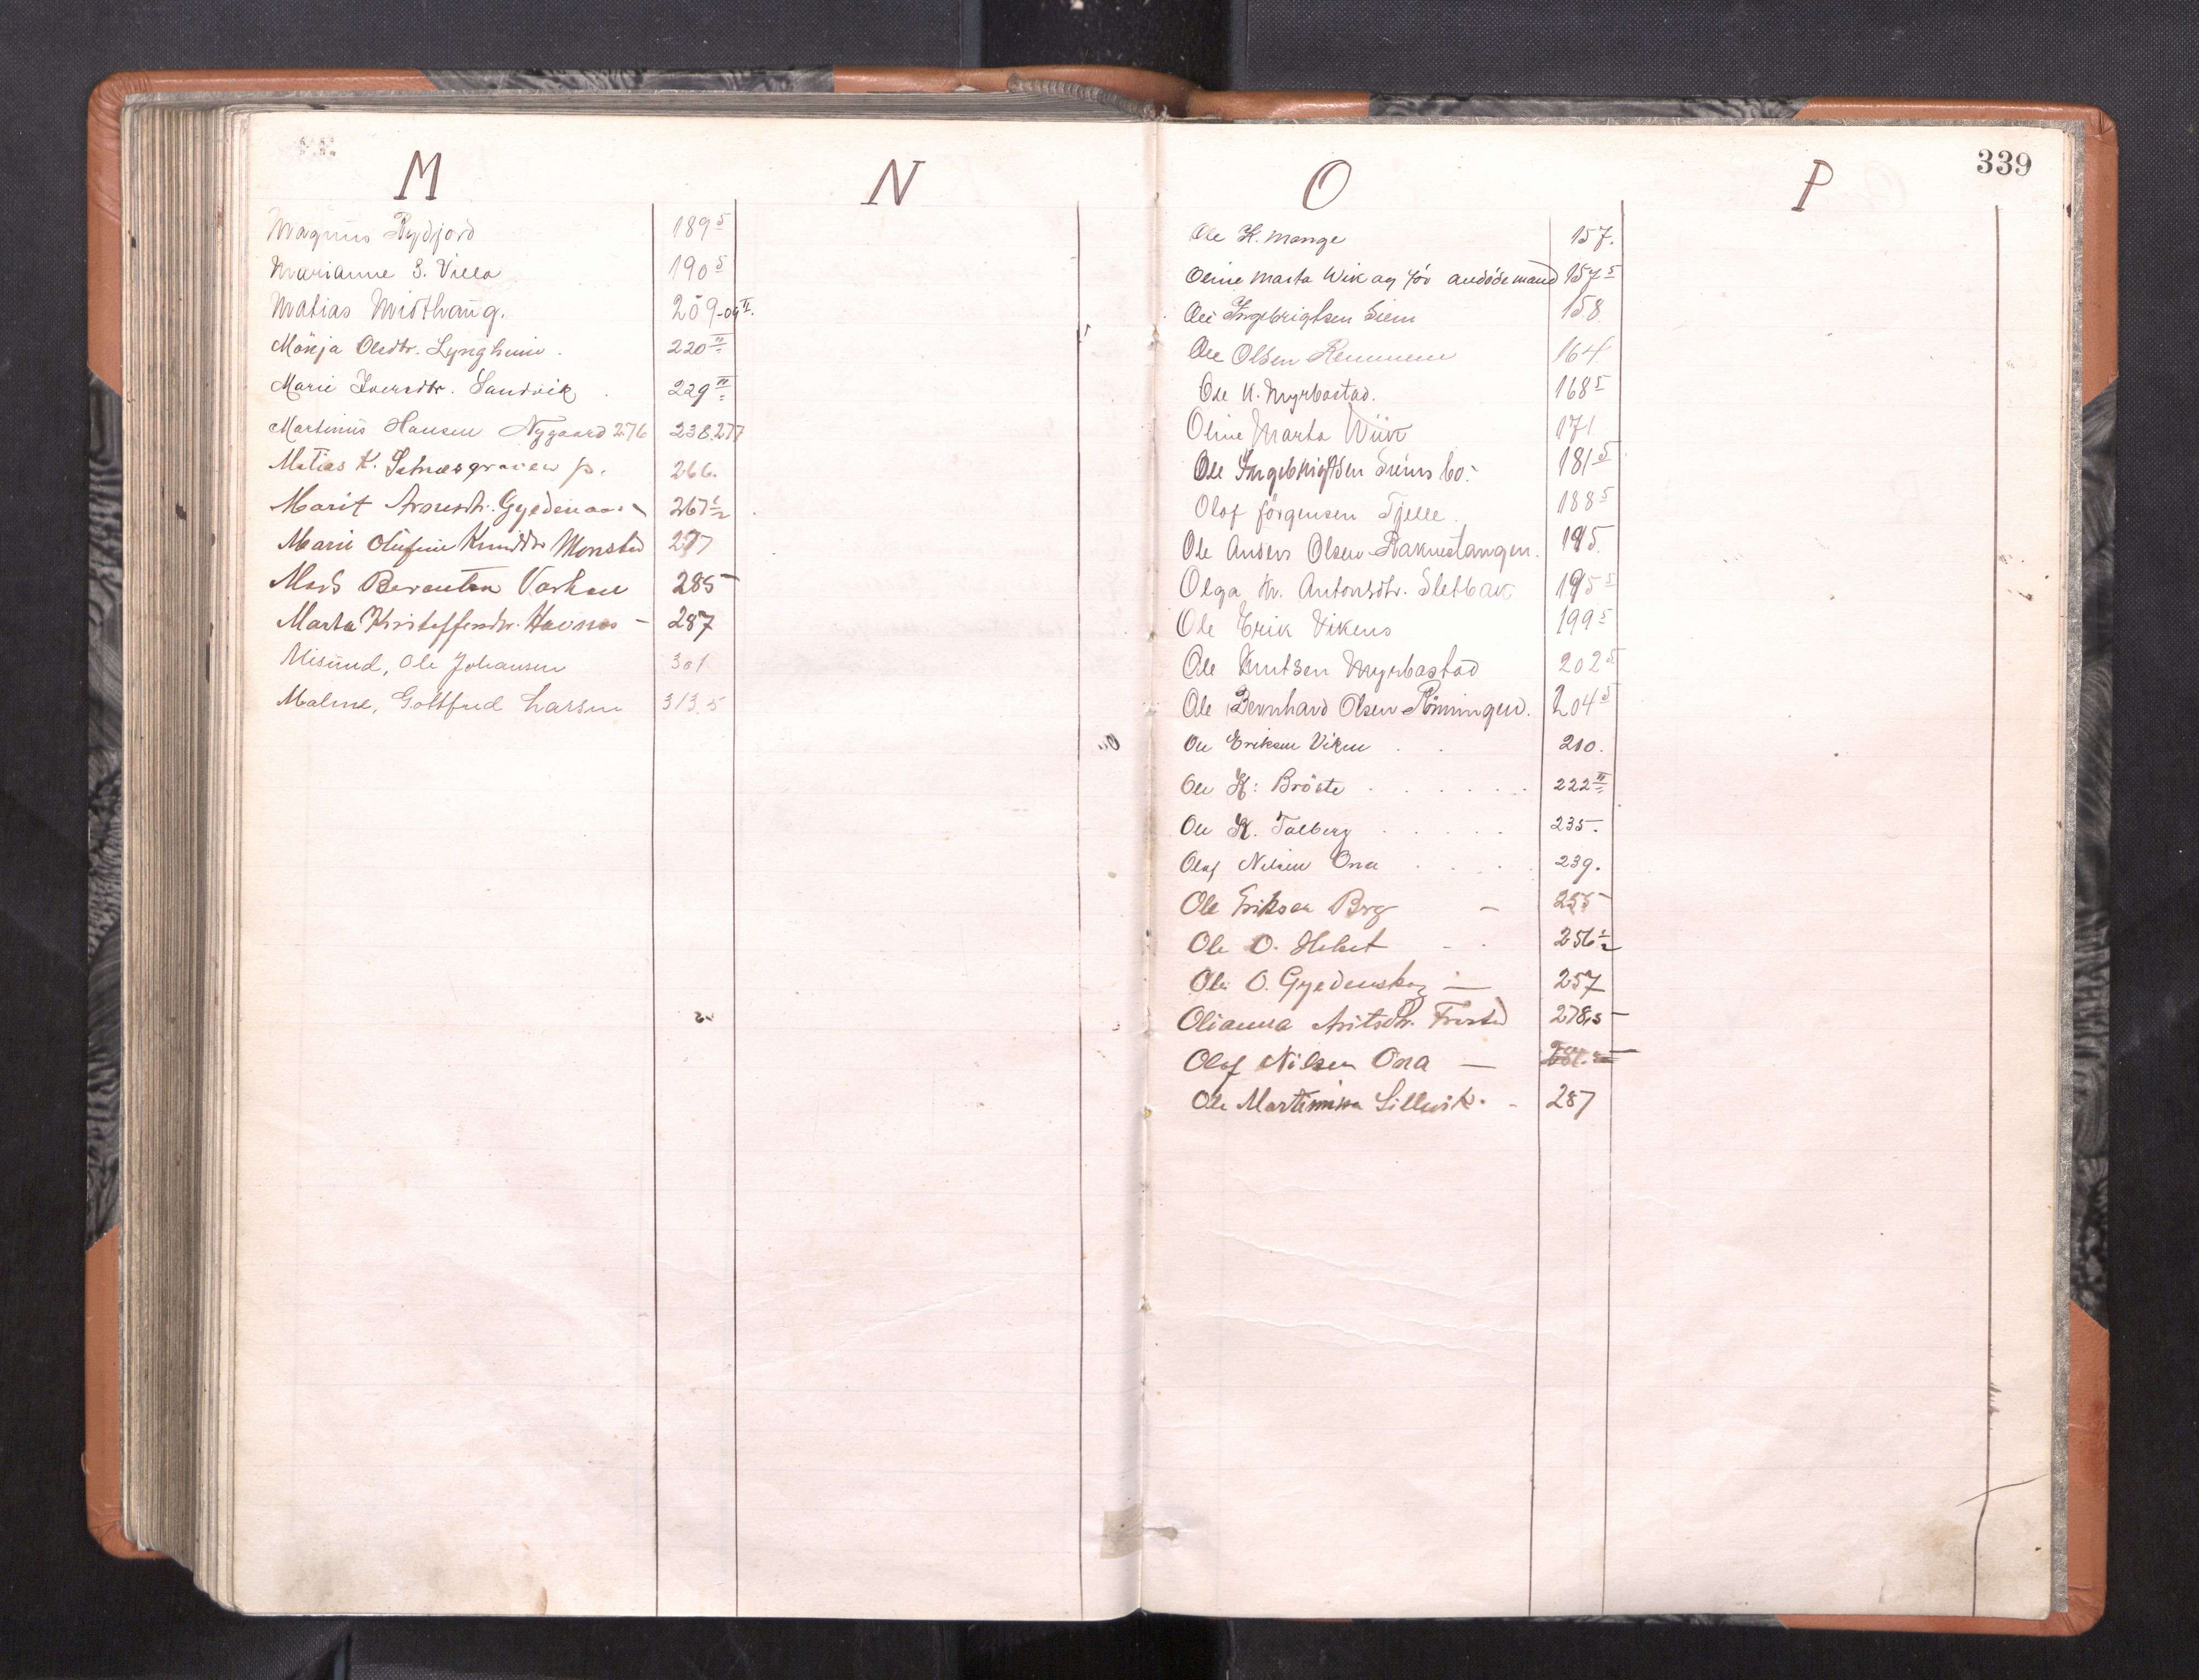 M
N
Magnus Rydjord 189 5
Marianne S. Villa 190 5
Matias Midthaug. 209-09 II.
Mönja Olsdtr. Lyngheim. 220 II
Marie Iversdtr. Sandvik. 229 II
Martinus Hansen Nygaard 276 238.277
Matias K. p. 266.
Marit Aronsdtr. 267 1/2
Marie Olufine Knudtdr Monstad 277
Mads Berentsen Varhau 285
Marta Kristoffersdtr. Havnes - 287
Misund, Ole Johansen 301
Malme, Gottfred Larsen 313.5
339
O
P
Ole K. Mange 157.
Oline Marta Wik og för avdöde mand 157 5
Ole Ingebrigtsen Siem 158
Ole Olsen Remmem 164.
Ole K. Myrbostad. 168 5
Oline Marta Wiik 171
Ole Ingebrigtsen Siems bo. 181 5
Olaf Jörgensen Tjelle. 188 5
Ole Anders Olsen Raknestangen. 195.
Olga Kr. Antonsdtr. Sletbak 195 5
Ole Erik Vikens 199 5
Ole Knutsen Myrbostad 202 5
Ole Bernhard Olsen Rönningen. 204 5
Ole Eriksen Viken . . 210.
Ole K: Bröste . . . . . . 222 II
Ole K. Talberg . . . . . 235.
Olaf Nilsen Ona . . . . 239.
Ole Eriksen Berg - 255
Ole O. Helset - . 256 1/2
Ole O. Gjedenskog — 257
Olianna 278,5
Olaf Nilsen Ona —
Ole Martinius Lillevik. - 287